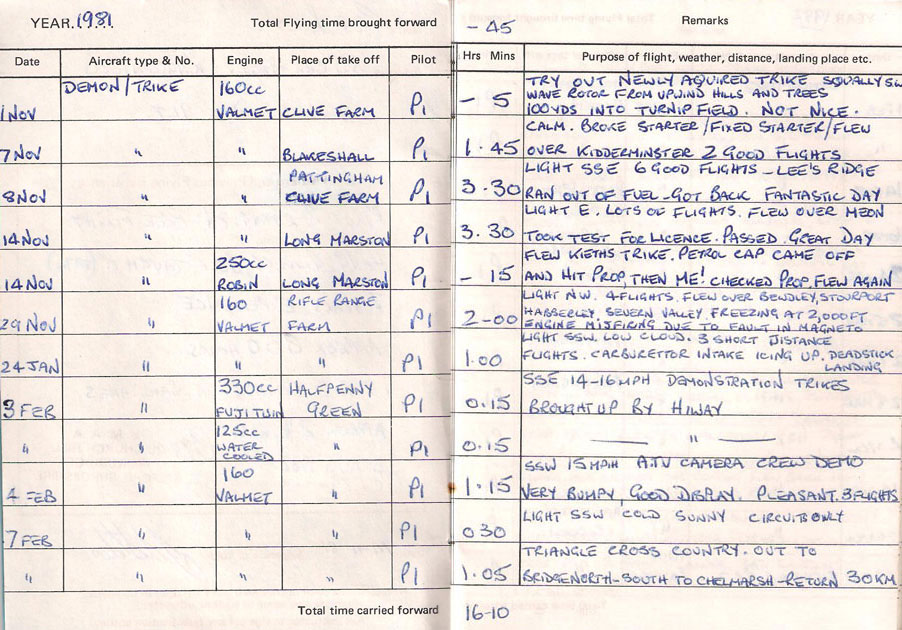 YEAR. 1981 Total Flying time brought forward - 45 Remarks
Date Aircraft type & No. Engine Place of take off Pilot Hrs Mins Purpose of flight, weather, distance, landing place etc.
1 NOV DEMON/TRIKE 160cc VALMET CLIVE FARM P1 - 5 TRY OUT NEWLY AQUIRED TRIKE SQUALLY S.W
WAVE ROTOR FROM UPWIND HILLS AND TREES
100YDS INTO TURNIP FIELD. NOT NICE.
7 NOV " " BLAKESHALL P1 1.45 CALM. BROKE STARTER/FIXED STARTER/FLEW
OVER KIDDERMINSTER 2 GOOD FLIGHTS
8 NOV " " PATTINGHAM CLIVE FARM P1 3.30 LIGHT SSE 6 GOOD FLIGHTS - LEE'S RIDGE
RAN OUT OF FUEL - GOT BACK FANTASTIC DAY
14 NOV " " LONG MARSTON P1 3.30 LIGHT E. LOTS OF FLIGHTS. FLEW OVER MEON
TOOK TEST FOR LICENCE. PASSED. GREAT DAY
14 NOV " 250cc ROBIN LONG MARSTON P1 - 15 FLEW KIETHS TRIKE. PETROL CAP CAME OFF
AND HIT PROP, THEN ME! CHECKED PROP. FLEW AGAIN
29 NOV " 160 VALMET RIFLE RANGE FARM P1 2-00 LIGHT N.W. 4 FLIGHTS. FLEW OVER BEWDLEY, STOURPORT
HABBERLEY, SEVERN VALLEY. FREEZING AT 2,000FT
ENGINE MISFIRING DUE TO FAULT IN MAGNETO
24 JAN " " " P1 1.00 LIGHT SSW. LOW CLOUD. 3 SHORT DISTANCE
FLIGHTS. CARBURETTOR INTAKE ICING UP. DEADSTICK
LANDING
3 FEB " 330cc FUJI TWIN HALFPENNY GREEN P1 0.15 SSE 14-16 MPH DEMONSTRATION TRIKES
BROUGHT UP BY HIWAY
" " 125cc WATER COOLED " P1 0.15 — " —
4 FEB " 160 VALMET " P1 1.15 SSW 15 MPH A.TV CAMERA CREW DEMO
VERY BUMPY, GOOD DISPLAY. PLEASANT. 3 FLIGHTS
7 FEB " " " P1 0 30 LIGHT SSW COLD SUNNY CIRCUITS ONLY
" " " " P1 1.05 TRIANGLE CROSS COUNTRY. OUT TO
BRIDGENORTH - SOUTH TO CHELMARSH - RETURN 30KM
Total time carried forward 16-10